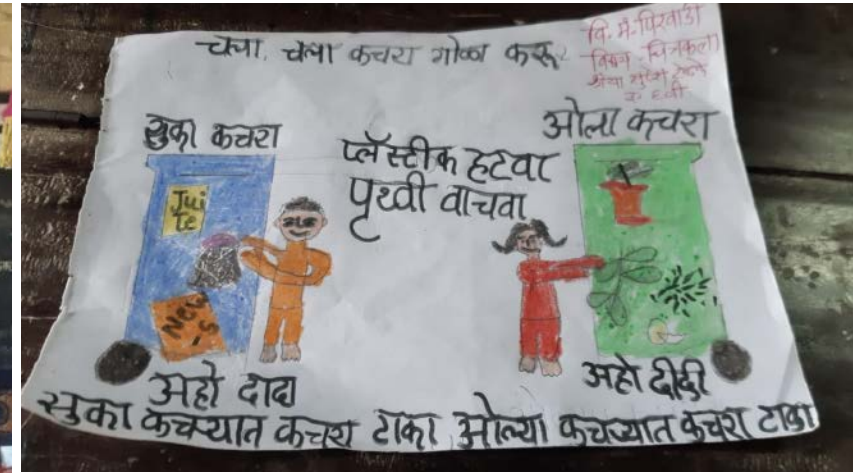 चला, चला कचरा गोळा करू
वि. मं. पिरवाडी
विषय - चित्रकला
सुका कचरा
ओला कचरा
प्लॅस्टीक हटवा
पृथ्वी वाचवा
Jui
te
New
's
अहो दादा
अहो दीदी
सुका कचऱ्यात कचरा टाका, ओल्या कचऱ्यात कचरा टाका